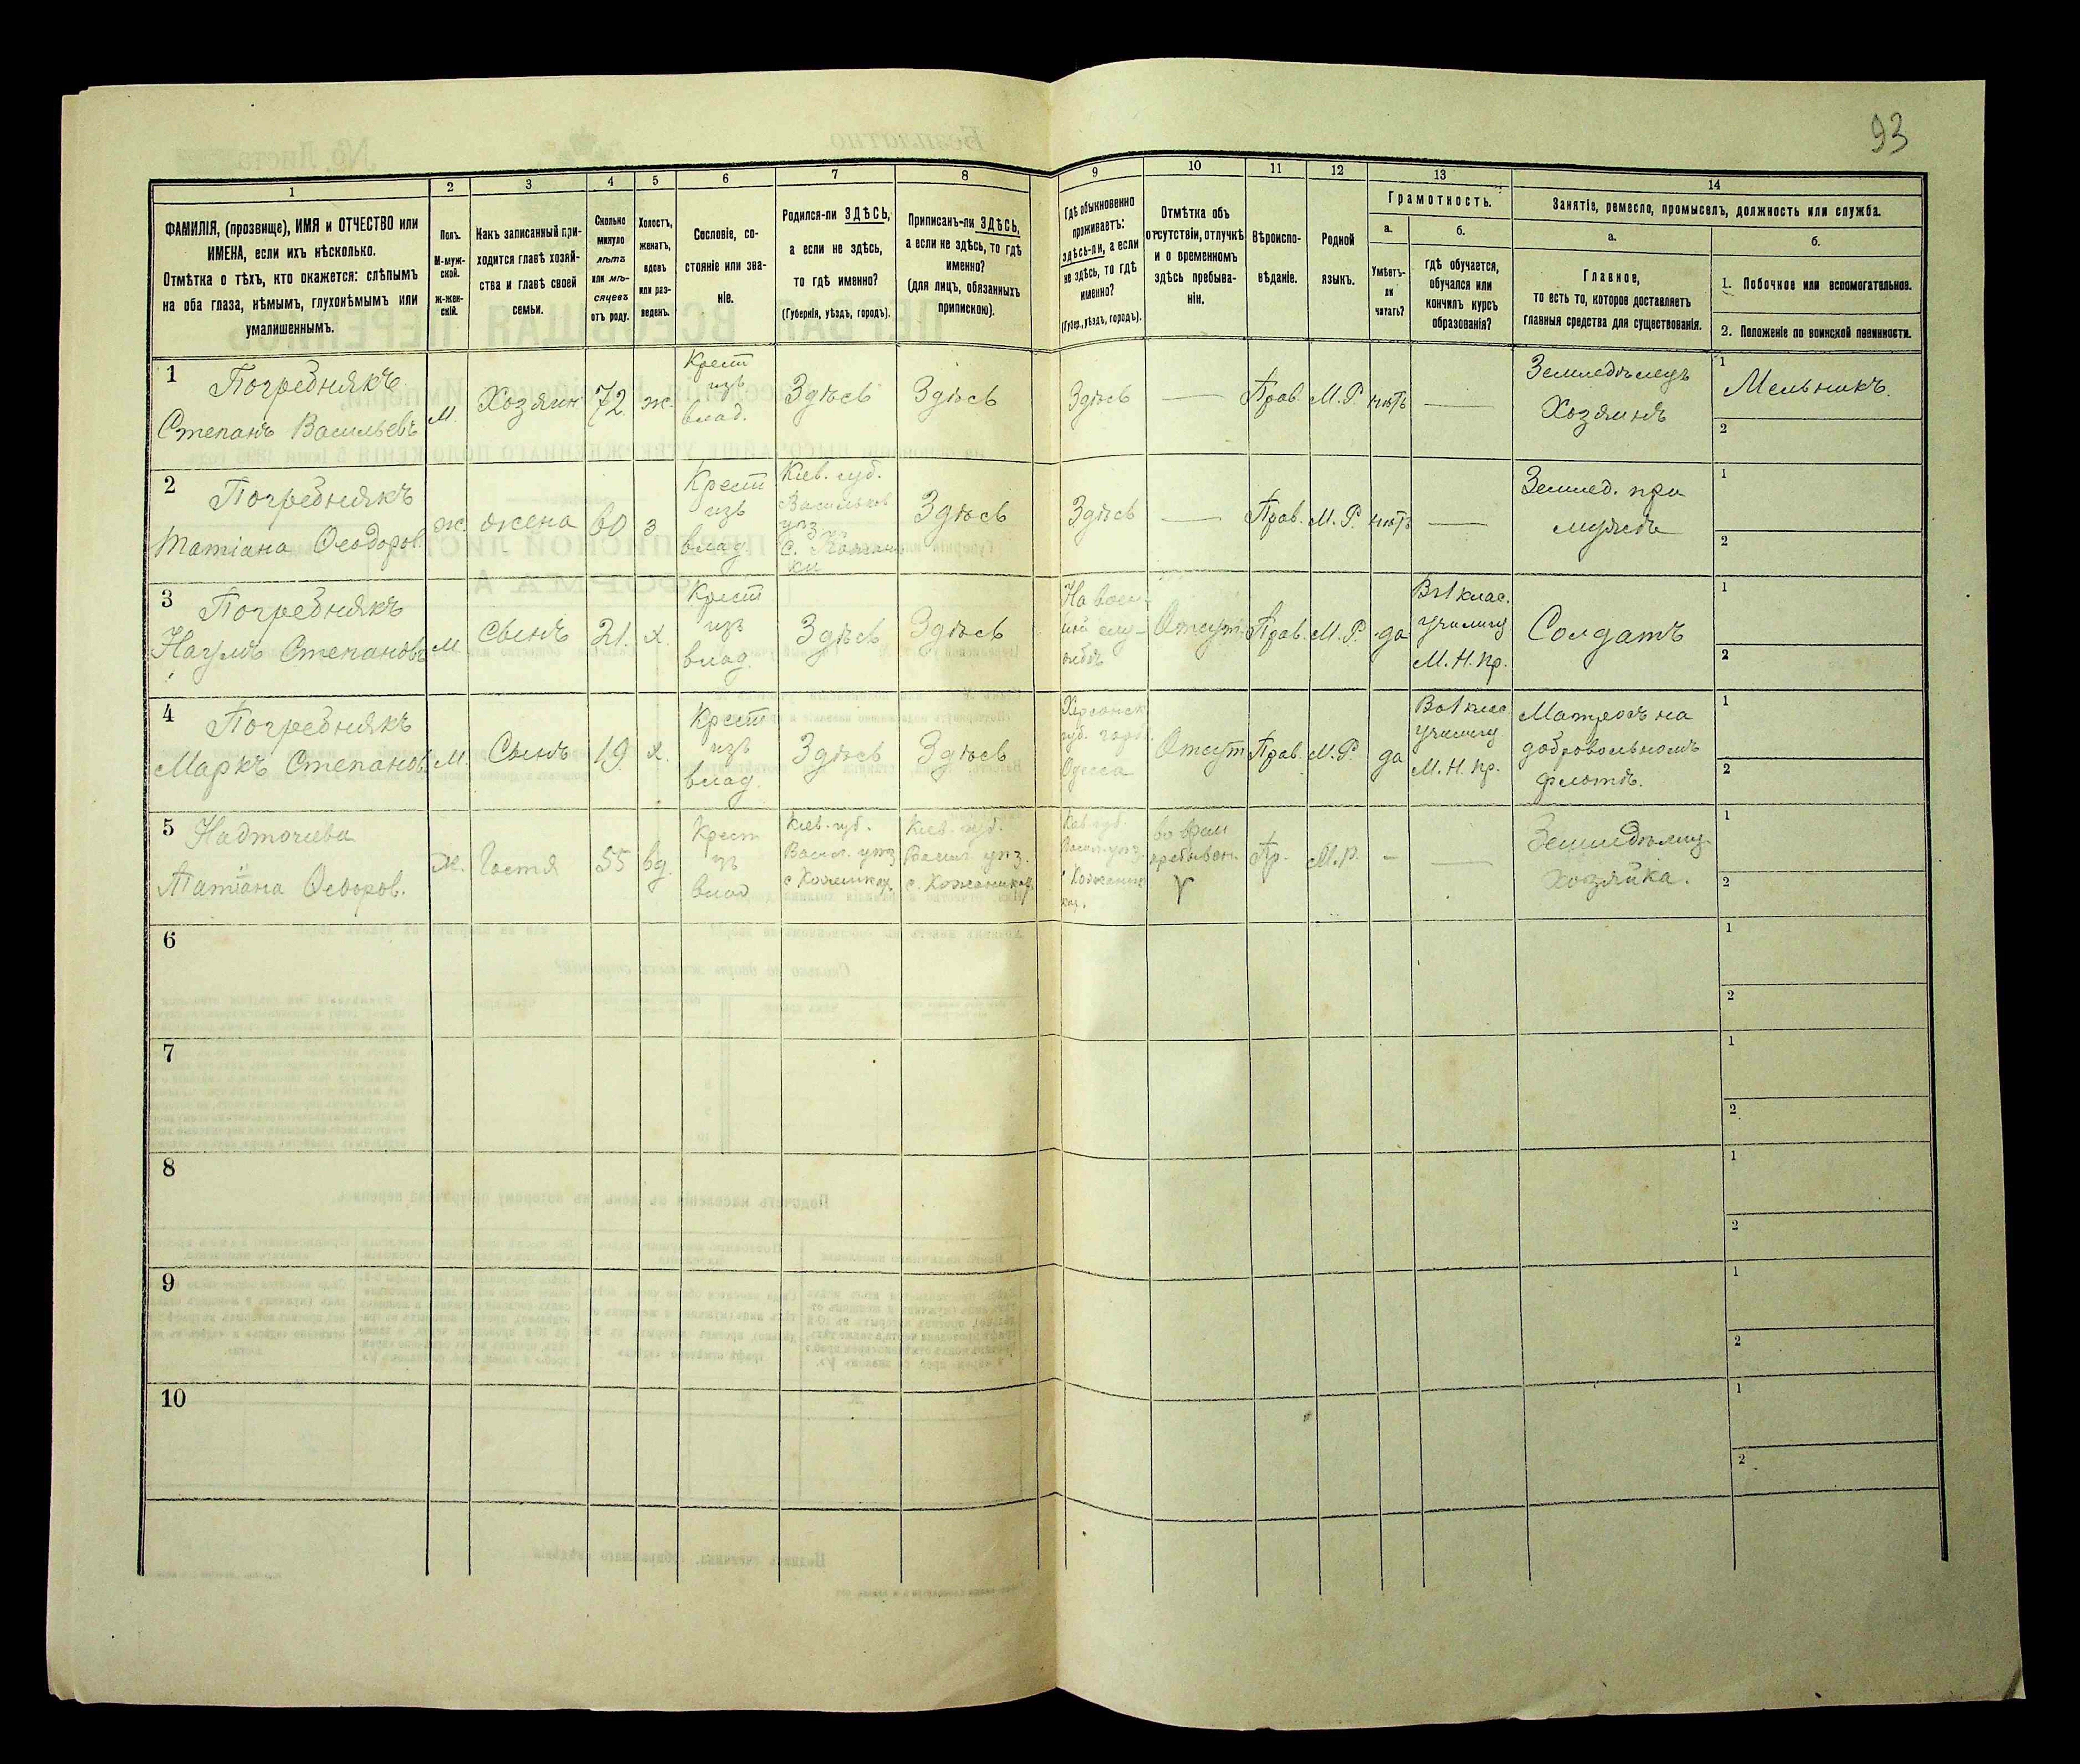 93
1
2
3
4
5
6
7
8
9
10
11
12
13
14
ФАМИЛІЯ, (прозвище), ИМЯ и ОТЧЕСТВО или
ИМЕНА, если ихъ нѣсколько.
Отмѣтка о тѣхъ, кто окажется: слѣпымъ
на оба глаза, нѣмымъ, глухонѣмымъ или
умалишеннымъ.
Полъ.
М-муж-
ской.
ж-жен-
скій.
Какъ записанный при-
ходится главѣ хозяй-
ства и главѣ своей
семьи.
Сколько
минуло
лѣтъ
или мѣ-
сяцевъ
отъ роду.
Холостъ,
женатъ,
вдовъ
или раз-
веденъ.
Сословіе, со-
стояніе или зва-
ніе.
Родился-ли ЗДѢСЬ,
а если не здѣсь,
то гдѣ именно?
(Губернія, уѣздъ, городъ).
Приписанъ-ли ЗДѢСЬ,
а если не здѣсь, то гдѣ
именно?
(для лицъ, обязанныхъ
припискою).
Гдѣ обыкновенно
проживаетъ:
здѣсь-ли, а если
не здѣсь, то гдѣ
именно?
(Губер., уѣздъ, городъ).
Отмѣтка объ
отсутствіи, отлучкѣ
и о временномъ
здѣсь пребыва-
ніи.
Вѣроиспо-
вѣданіе.
Родной
языкъ.
Грамотность.
а.
Умѣетъ-
ли
читать?
б.
гдѣ обучается,
обучался или
кончилъ курсъ
образованія?
Занятіе, ремесло, промыселъ, должность или служба.
а.
Главное,
то есть то, которое доставляетъ
главныя средства для существованія.
б.
1. Побочное или вспомогательное.
2. Положеніе по воинской повинности.
1 Погребнякъ
Степанъ Васильевъ
м.
Хозяин
72
ж.
Крест
изъ
влад.
Здѣсь
Здѣсь
Здѣсь
—
Прав.
М.Р.
нѣтъ
—
Земледѣлецъ
Хозяинъ
1 Мельникъ.
2
2 Погребнякъ
Татіана Ѳеодоров.
ж.
жена
60
з
Крест
изъ
влад
Кіев. губ.
Васильков.
уѣз
Здѣсь
Здѣсь
—
Прав.
М.Р.
нѣтъ
—
Землед. при
мужѣ
1
2
3 Погребнякъ
Наумъ Степановъ
м
сынъ
21.
х.
Крест
изъ
влад.
Здѣсь
Здѣсь
На воен-
ной слу-
жбѣ
Отсут.
Прав.
М.Р.
да
Въ 1 клас.
училищ
М.Н.пр.
Солдатъ
1
2
4 Погребнякъ
Маркъ Степанов.
м.
Сынъ
19
х.
Крест
изъ
влад.
Здѣсь
Здѣсь
Херсонск
губ. город.
Одесса
Отсут
Прав.
М.Р.
да
Въ 1 клас
училищ
М.Н.пр.
Матросъ на
добровольномъ
флотѣ.
1
2
5 Надточиева
Татіана Ѳеодоров.
ж.
Гостя
55
вд.
Крест
изъ
влад
Кіев. губ.
Васил. уѣз.
Кіев. губ.
Васил. уѣз.
Пр.
М.Р.
-
—
Хозяйка.
1
2
6
1
2
7
1
2
8
1
2
9
1
2
10
1
2